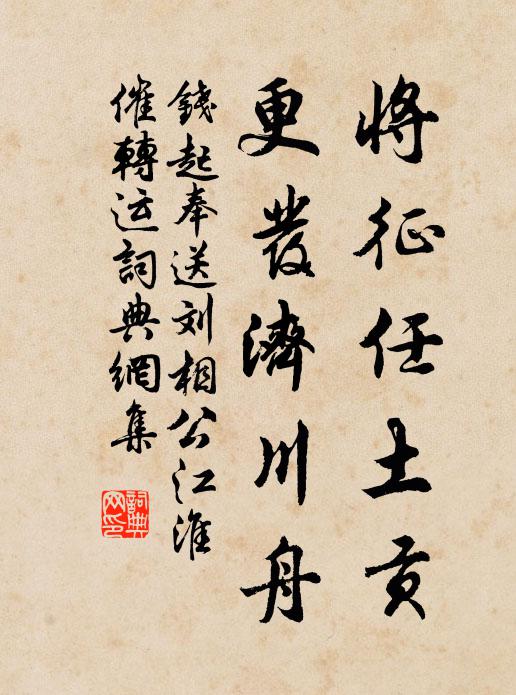 将征任土贡
更發濟川舟
錢起奉送刘相公江淮
催轉运詞典網集
詞典
网印